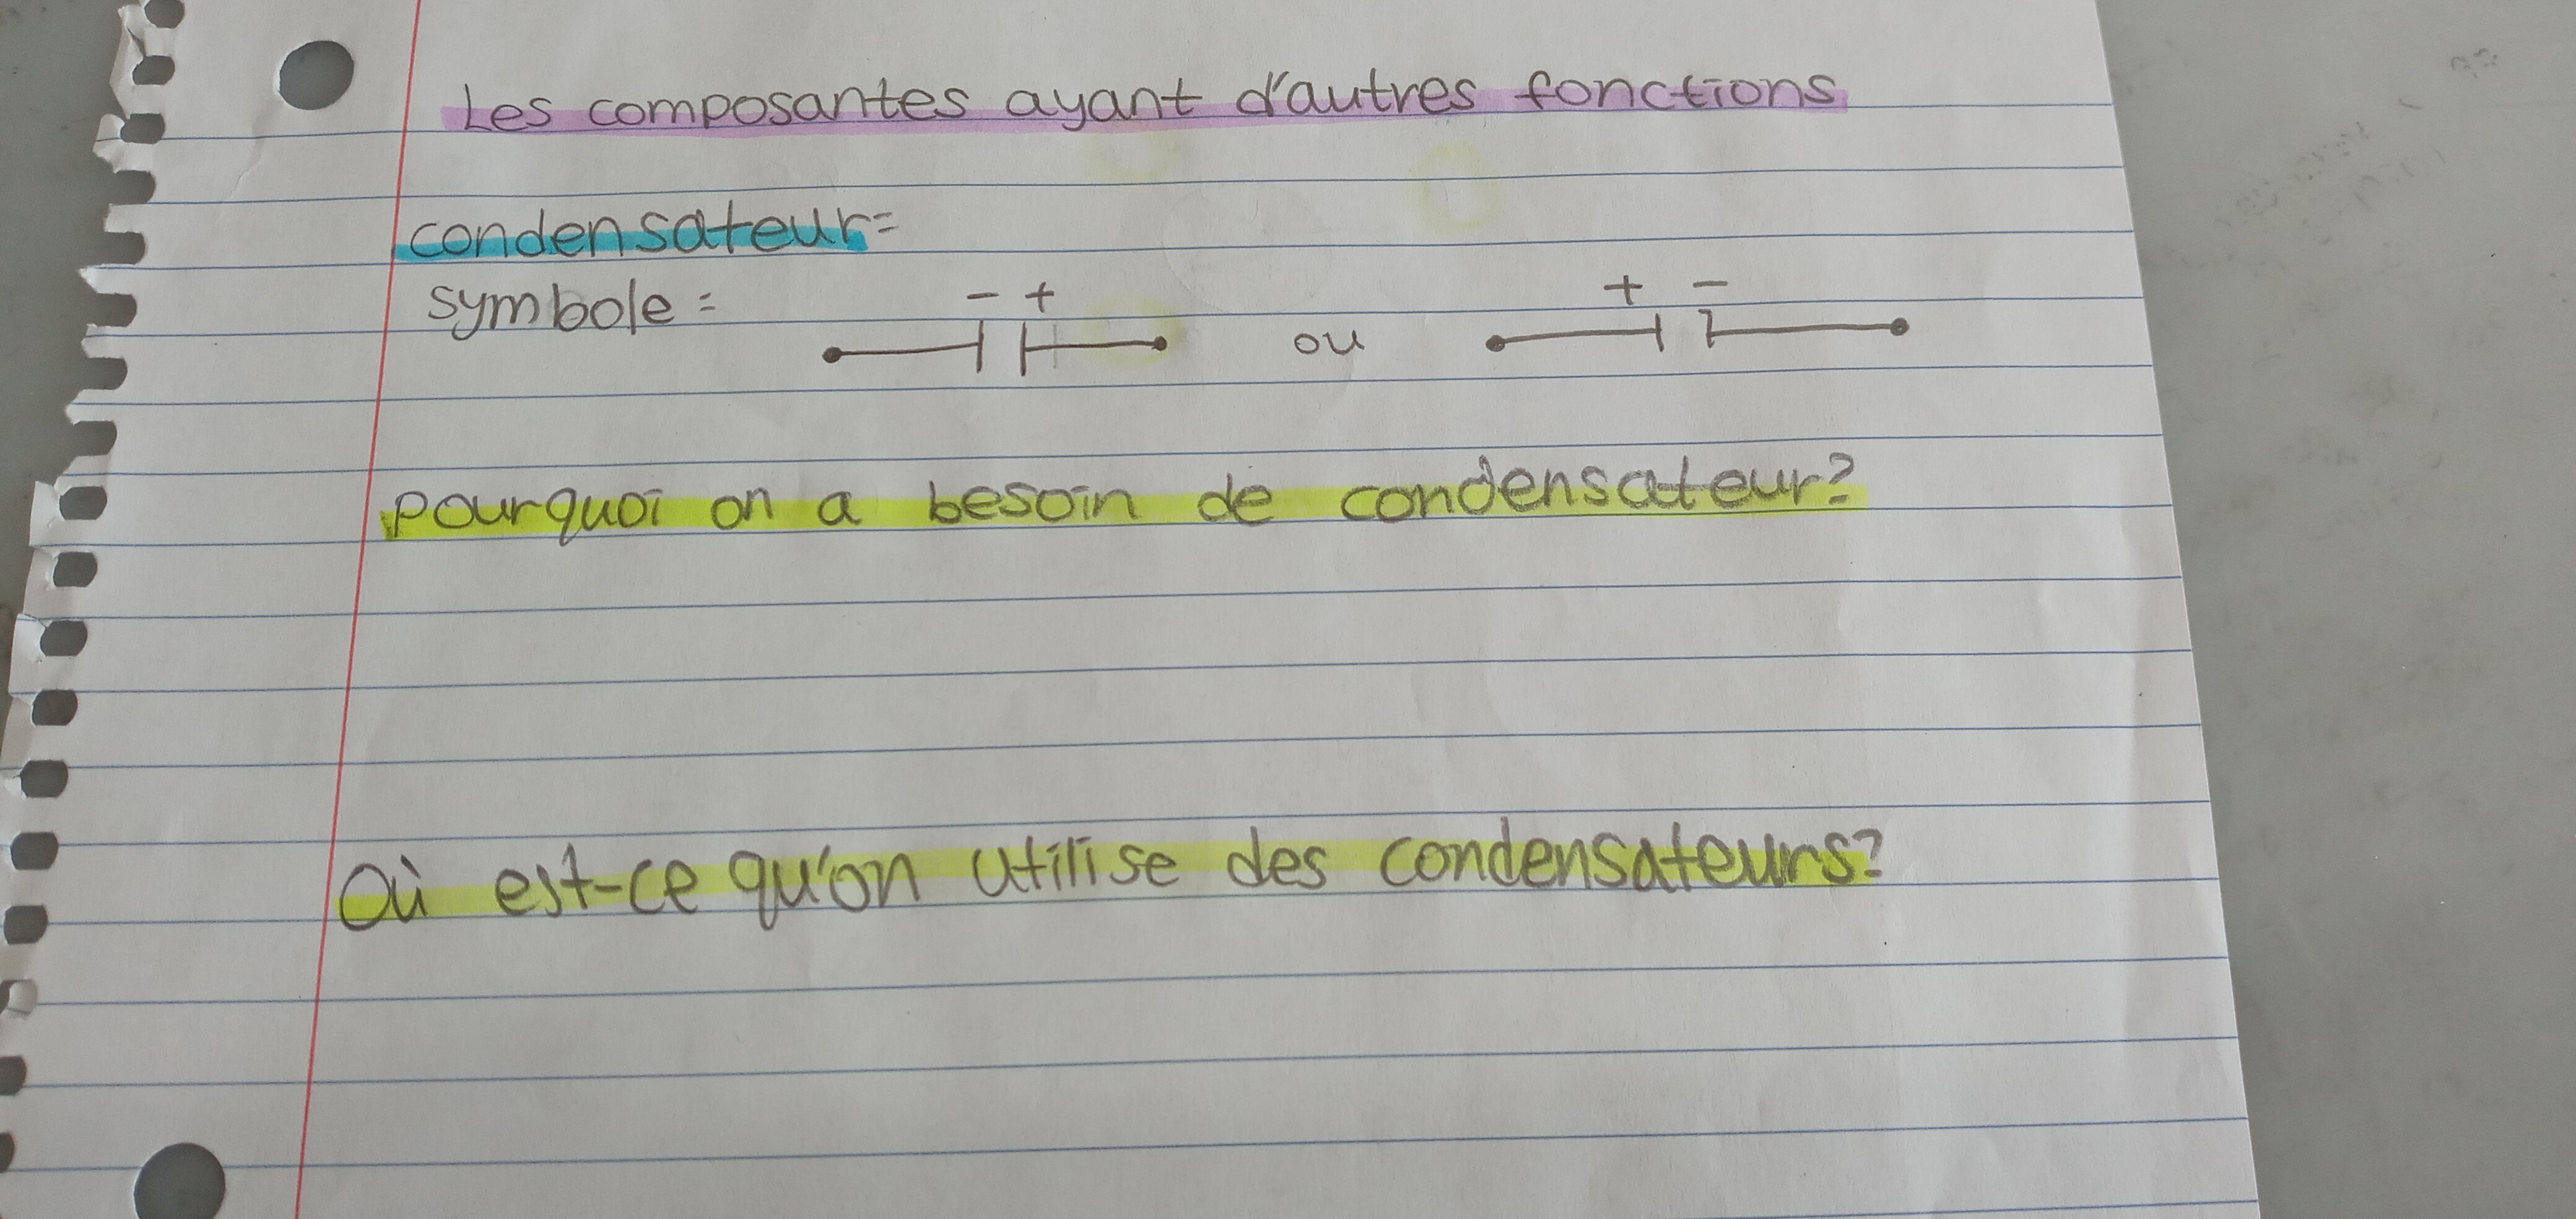 Les composantes ayant d'autres fonctions
condensateur=
symbole = - + ou + -
pourquoi on a besoin de condensateur?
Où est-ce qu'on utilise des condensateurs?